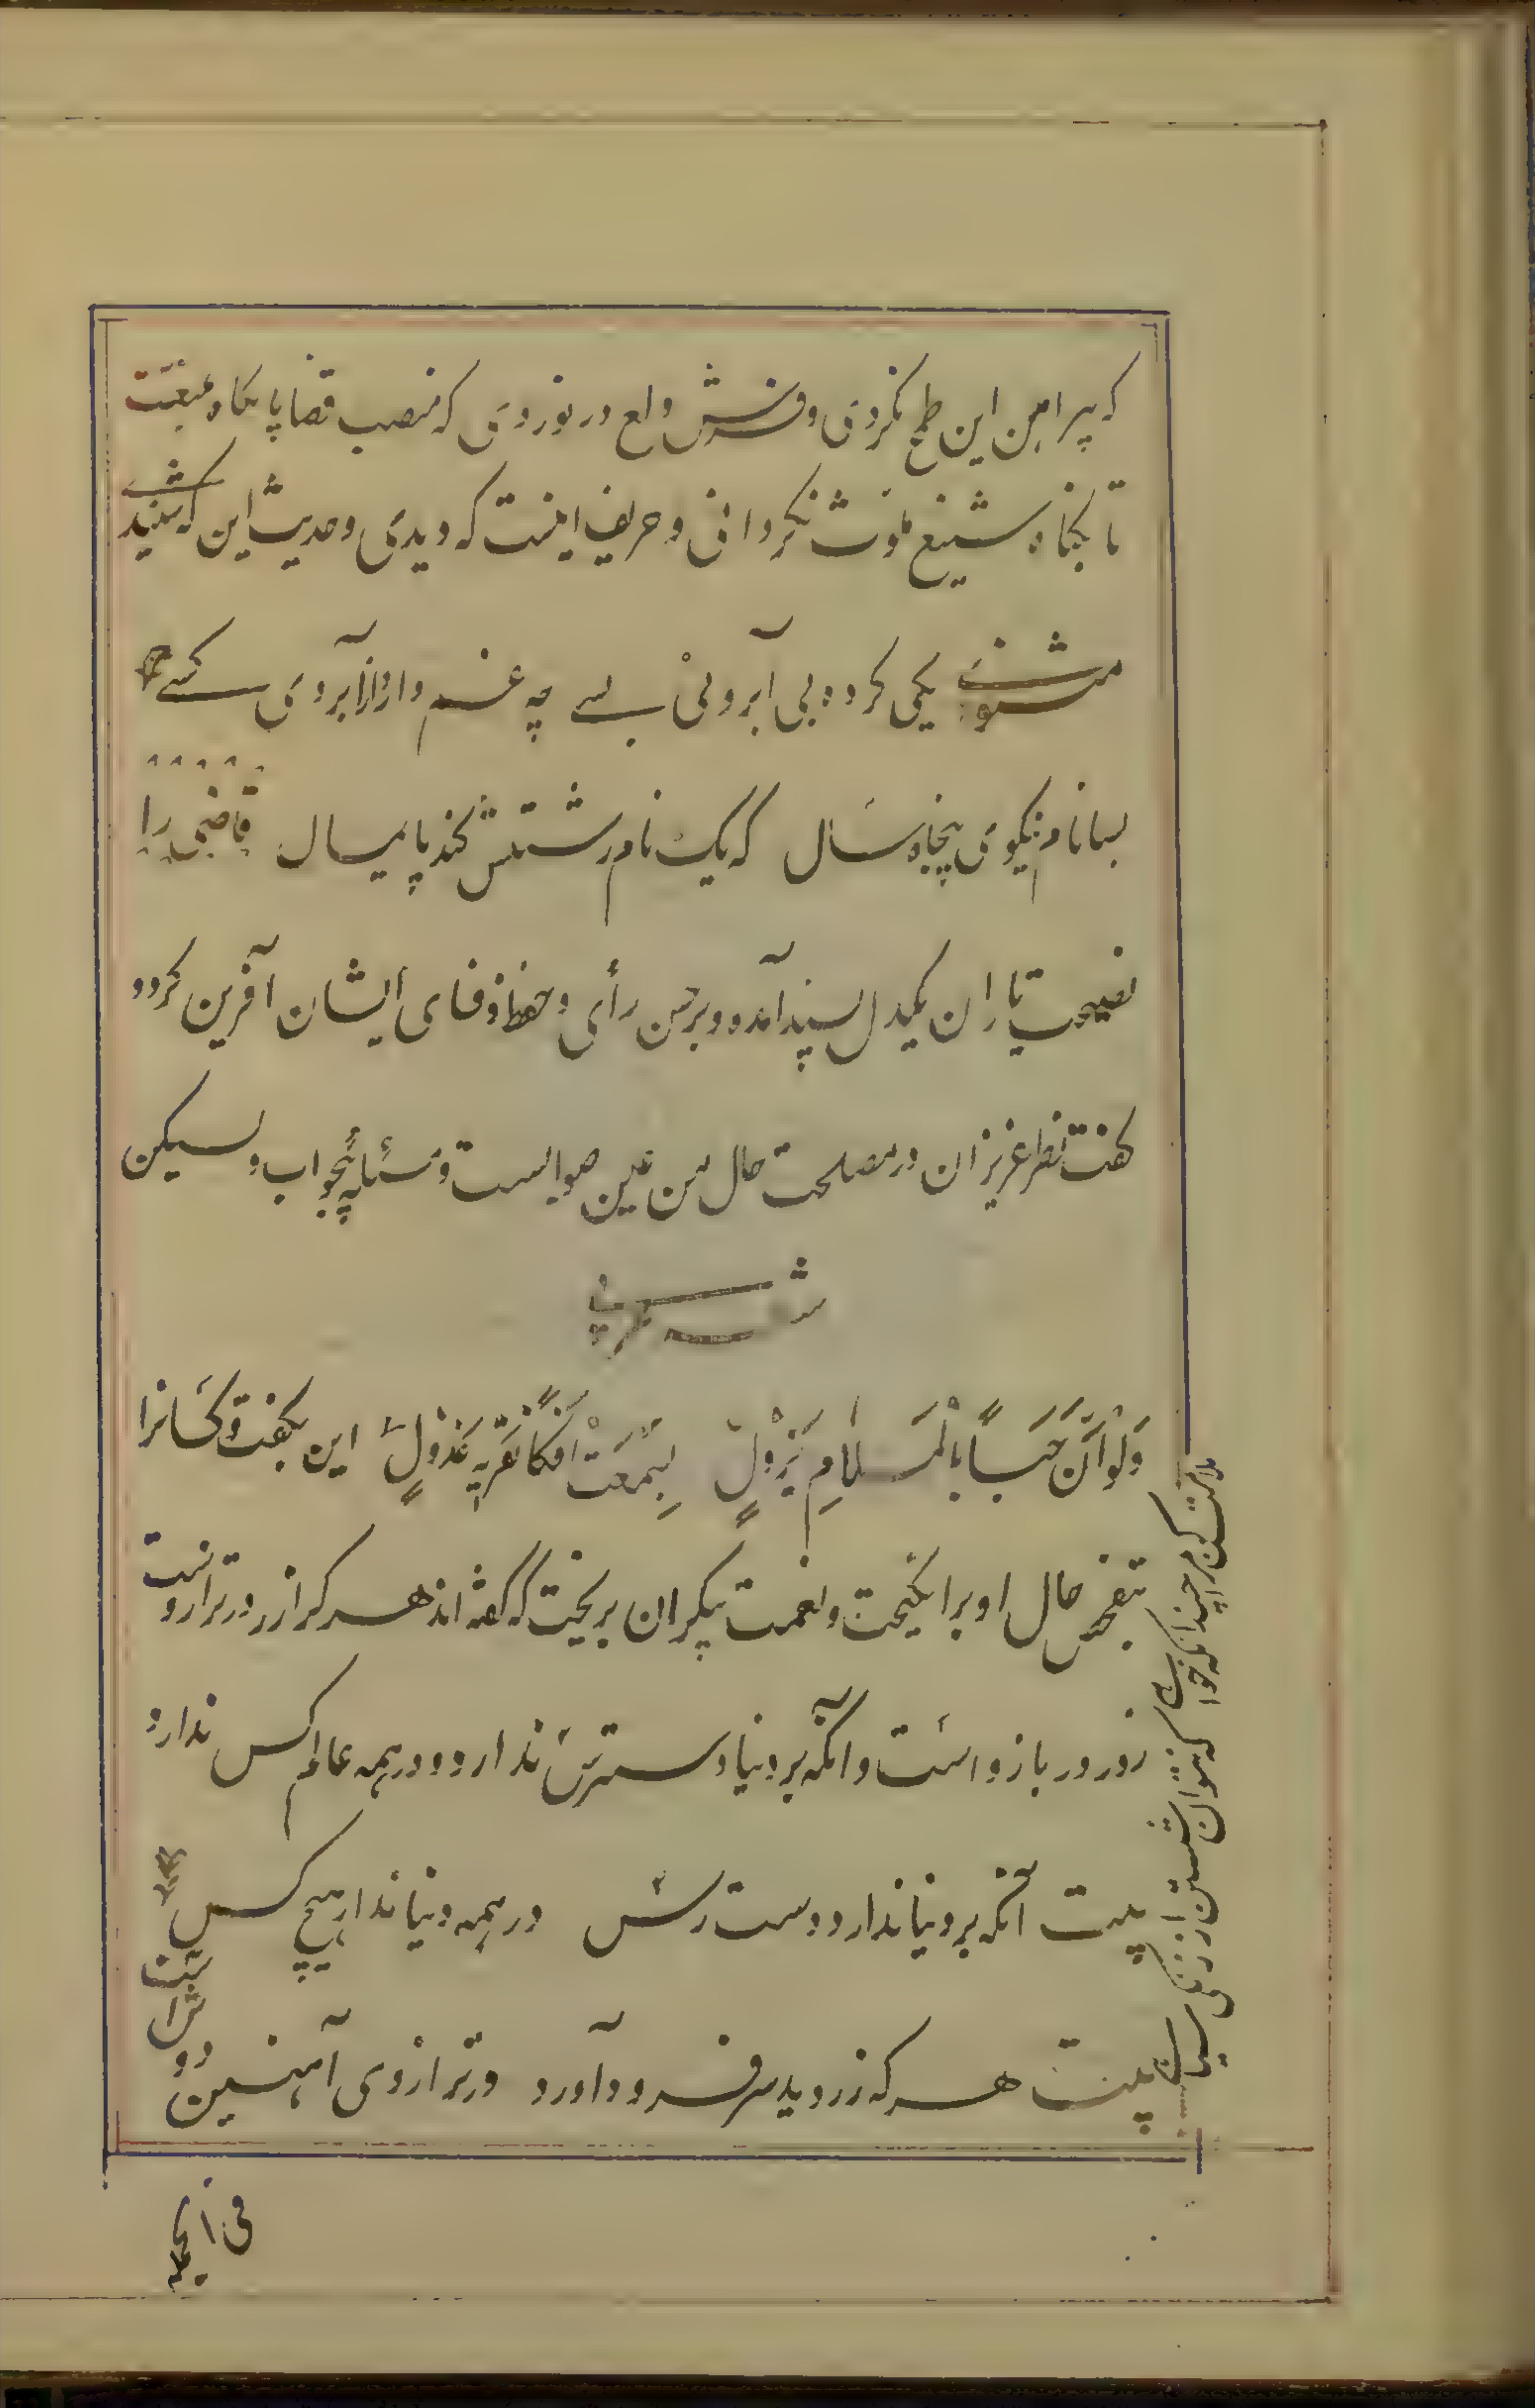 که پیرامن این طمع نکردی و فرش ولع در نوردی که منصب قضا پایگاه منیعست
تا بگناه شنیع ملوث نکردانی و حریف اینست که دیدی و حدیث این که شنیدی
مثنوی یکی کرده بی آبروئی بسے چه غم دارد از آبروی کسے
بسا نام نیکوی پنجاه سال که یک نام زشتش کند پایمال قاضی را
نصیحت یاران یکدل پسند آمد و بر حسن رأی و حفظ وفای ایشان آفرین کرد و
کفت نظر عزیزان در مصلحت حال من عین صوابست و مسئله بیجواب ولیکن
شعر
وَلَوْ أَنَّ حَبّاً بِالْمَلَامِ يَزُولُ لَسَمِعْتُ افکاً یفتریه عَذُولٌ این بکفت و کسانرا
ملامت کن مرا چندانکه خواهی که نتوان شستن از زنکی سیاهی
بتفحص حال او برانکیخت و نعمت بیکران بریخت که کفته اند هر که را زر در ترازوست
زور در بازو است و آنکه بر دنیا دسترس ندارد در همه عالم کس ندارد
بیت آنکه بر دنیا ندارد دست رس در همه دنیا ندارد هیچ کس
بیت هر که زر دید سر فرود آورد ور ترازوی آهنین دو
ش است
فی الجمله